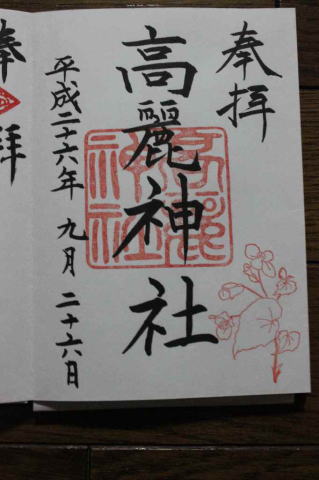 奉拝
高麗神社
高麗神社
平成二十六年 九月 二十六日
奉拝